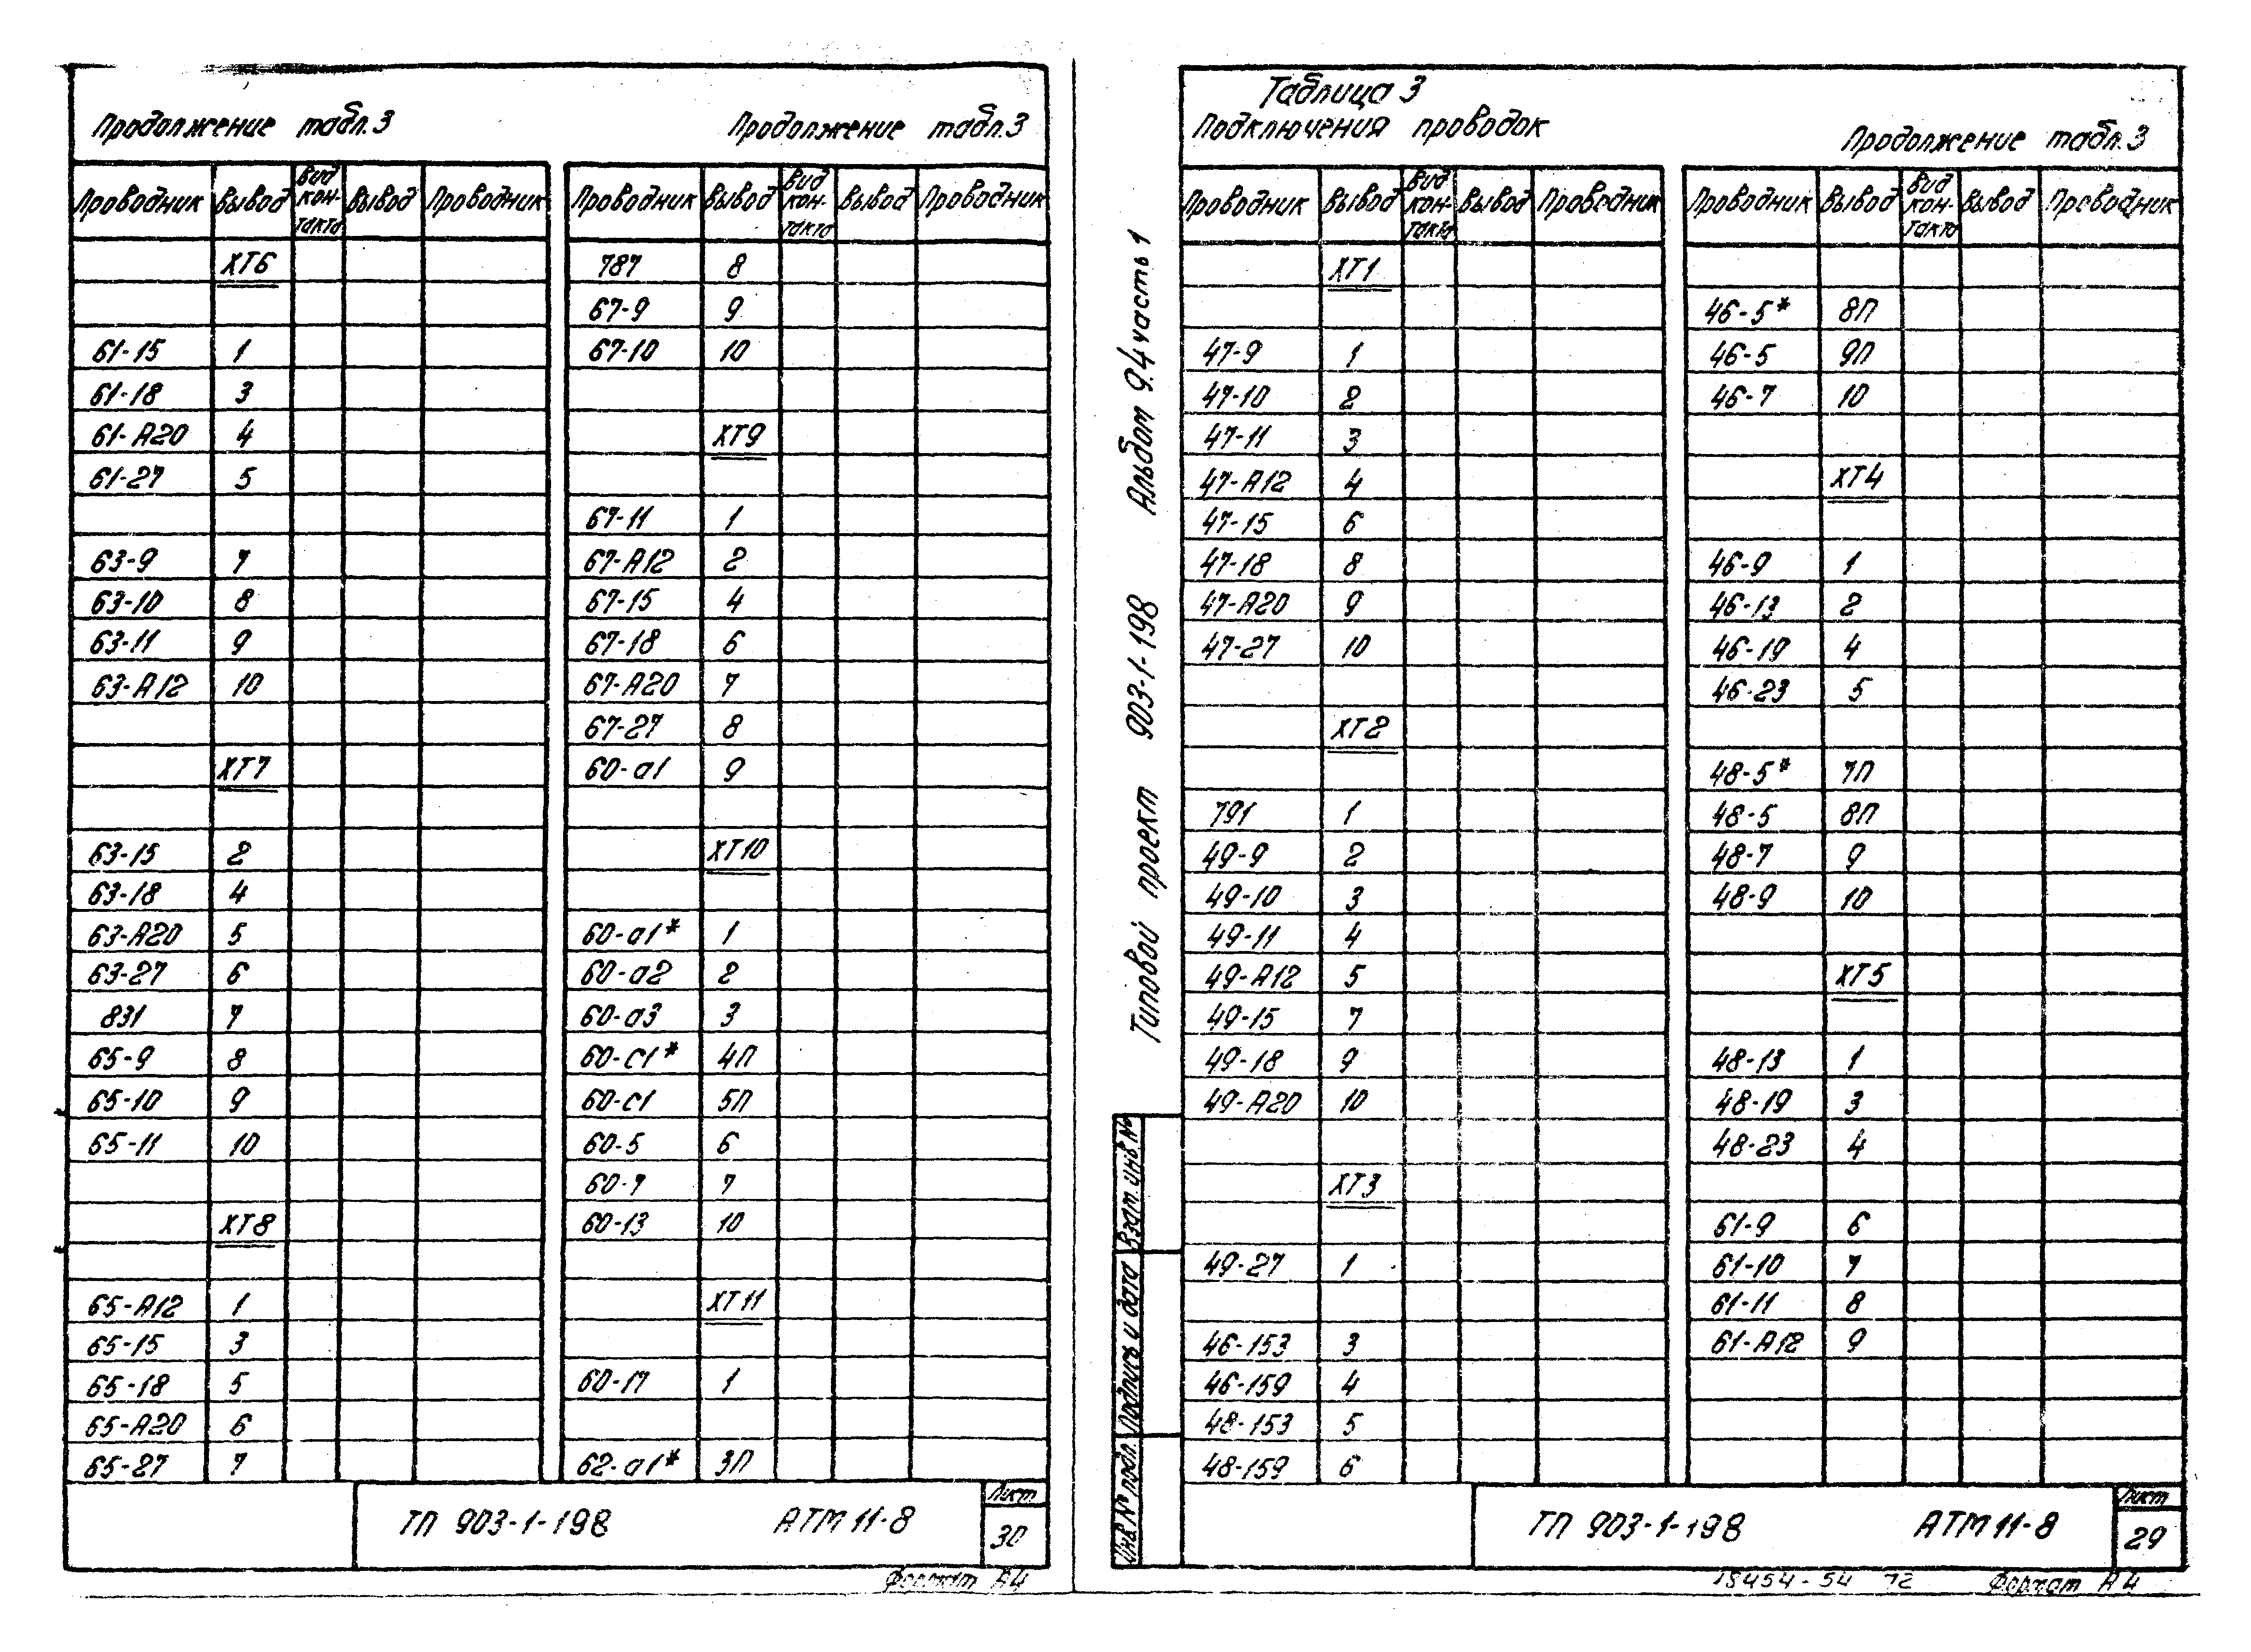 Продолжение табл.3
Проводник Вывод Вид кон-такта Вывод Проводник
ХТ6
61-15 1
61-18 3
61-А20 4
61-27 5
63-9 7
63-10 8
63-11 9
63-А12 10
ХТ7
63-15 2
63-18 4
63-А20 5
63-27 6
831 7
65-9 8
65-10 9
65-11 10
ХТ8
65-А12 1
65-15 3
65-18 5
65-А20 6
65-27 7
Продолжение табл.3
Проводник Вывод Вид кон-такта Вывод Проводник
787 8
67-9 9
67-10 10
ХТ9
67-11 1
67-А12 2
67-15 4
67-18 6
67-А20 7
67-27 8
60-а1 9
ХТ10
60-а1* 1
60-а2 2
60-а3 3
60-с1* 4П
60-с1 5П
60-5 6
60-7 7
60-13 10
ХТ11
60-17 1
62-а1* 3П
ТП 903-1-198 АТМ 11-8
Лист
30
Формат А4
Типовой проект 903-1-198 Альбом 9.4 часть 1
Взам. инв №
Подпись и дата
Инв. № подл.
Таблица 3
Подключения проводок
Проводник Вывод Вид кон-такта Вывод Проводник
ХТ1
47-9 1
47-10 2
47-11 3
47-А12 4
47-15 6
47-18 8
47-А20 9
47-27 10
ХТ2
791 1
49-9 2
49-10 3
49-11 4
49-А12 5
49-15 7
49-18 9
49-А20 10
ХТ3
49-27 1
46-153 3
46-159 4
48-153 5
48-159 6
Продолжение табл.3
Проводник Вывод Вид кон-такта Вывод Проводник
46-5* 8П
46-5 9П
46-7 10
ХТ4
46-9 1
46-13 2
46-19 4
46-23 5
48-5* 7П
48-5 8П
48-7 9
48-9 10
ХТ5
48-13 1
48-19 3
48-23 4
61-9 6
61-10 7
61-11 8
61-А12 9
ТП 903-1-198 АТМ 11-8
Лист
29
18454-54 72 Формат А4